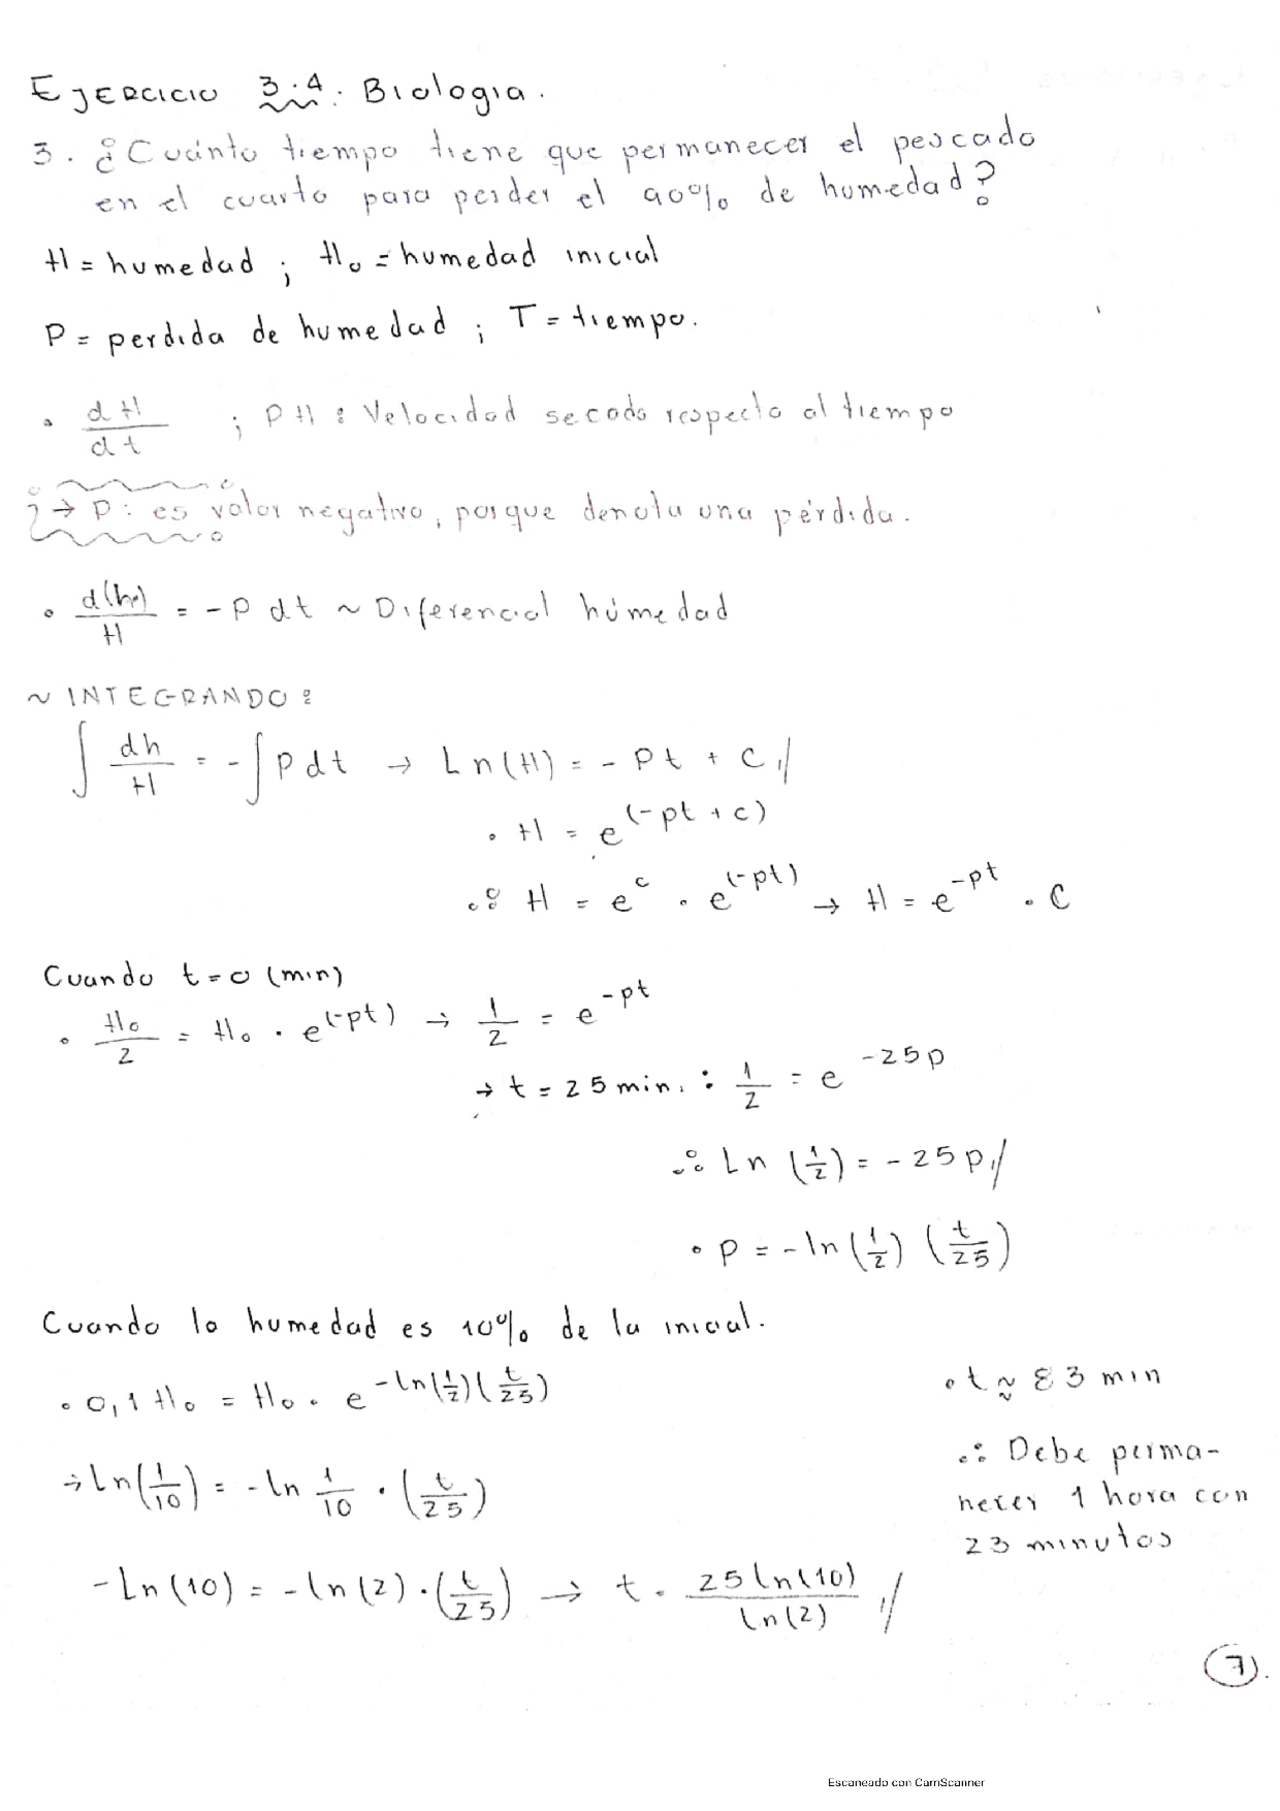 EJERCICIO 3.4: Biologia.
3. ¿Cuánto tiempo tiene que permanecer el pescado
en el cuarto para perder el 90% de humedad?
H = humedad ; H₀ = humedad inicial
P = perdida de humedad ; T = tiempo.
• dH/dt ; PH : Velocidad secado respecto al tiempo
¡→ P: es valor negativo, porque denota una pérdida.
• d(h)/H = -P dt ~ Diferencial húmedad
~ INTEGRANDO :
∫ dh/H = -∫ P dt → Ln(H) = - Pt + C //
• H = e^(-pt + c)
∴ H = e^c . e^(-pt) → H = e^-pt . C
Cuando t=0 (min)
• H₀/2 = H₀ . e^(-pt) → 1/2 = e^-pt
→ t = 25 min. : 1/2 = e^-25p
∴ Ln (1/2) = - 25 p //
• p = -ln (1/2) (t/25)
Cuando la humedad es 10% de la inicial.
• 0,1 H₀ = H₀ . e^-ln(1/2)(t/25)
→ ln(1/10) = -ln 1/10 . (t/25)
-Ln(10) = -ln(2) . (t/25) → t = 25 ln(10)/ln(2) //
• t ≈ 83 min
∴ Debe perma-
necer 1 hora con
23 minutos
7.
Escaneado con CamScanner